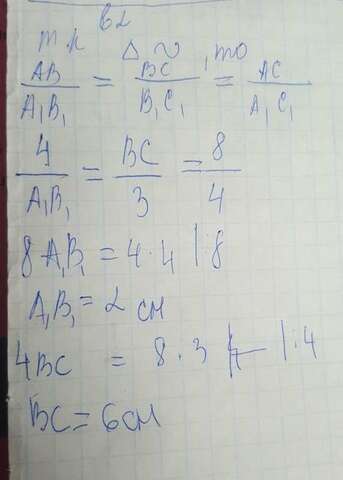 в2
т.к △ ~, то
AB/A₁B₁ = BC/B₁C₁ = AC/A₁C₁
4/A₁B₁ = BC/3 = 8/4
8A₁B₁ = 4·4 |:8
A₁B₁ = 2 см
4BC = 8·3 |:4
BC = 6см